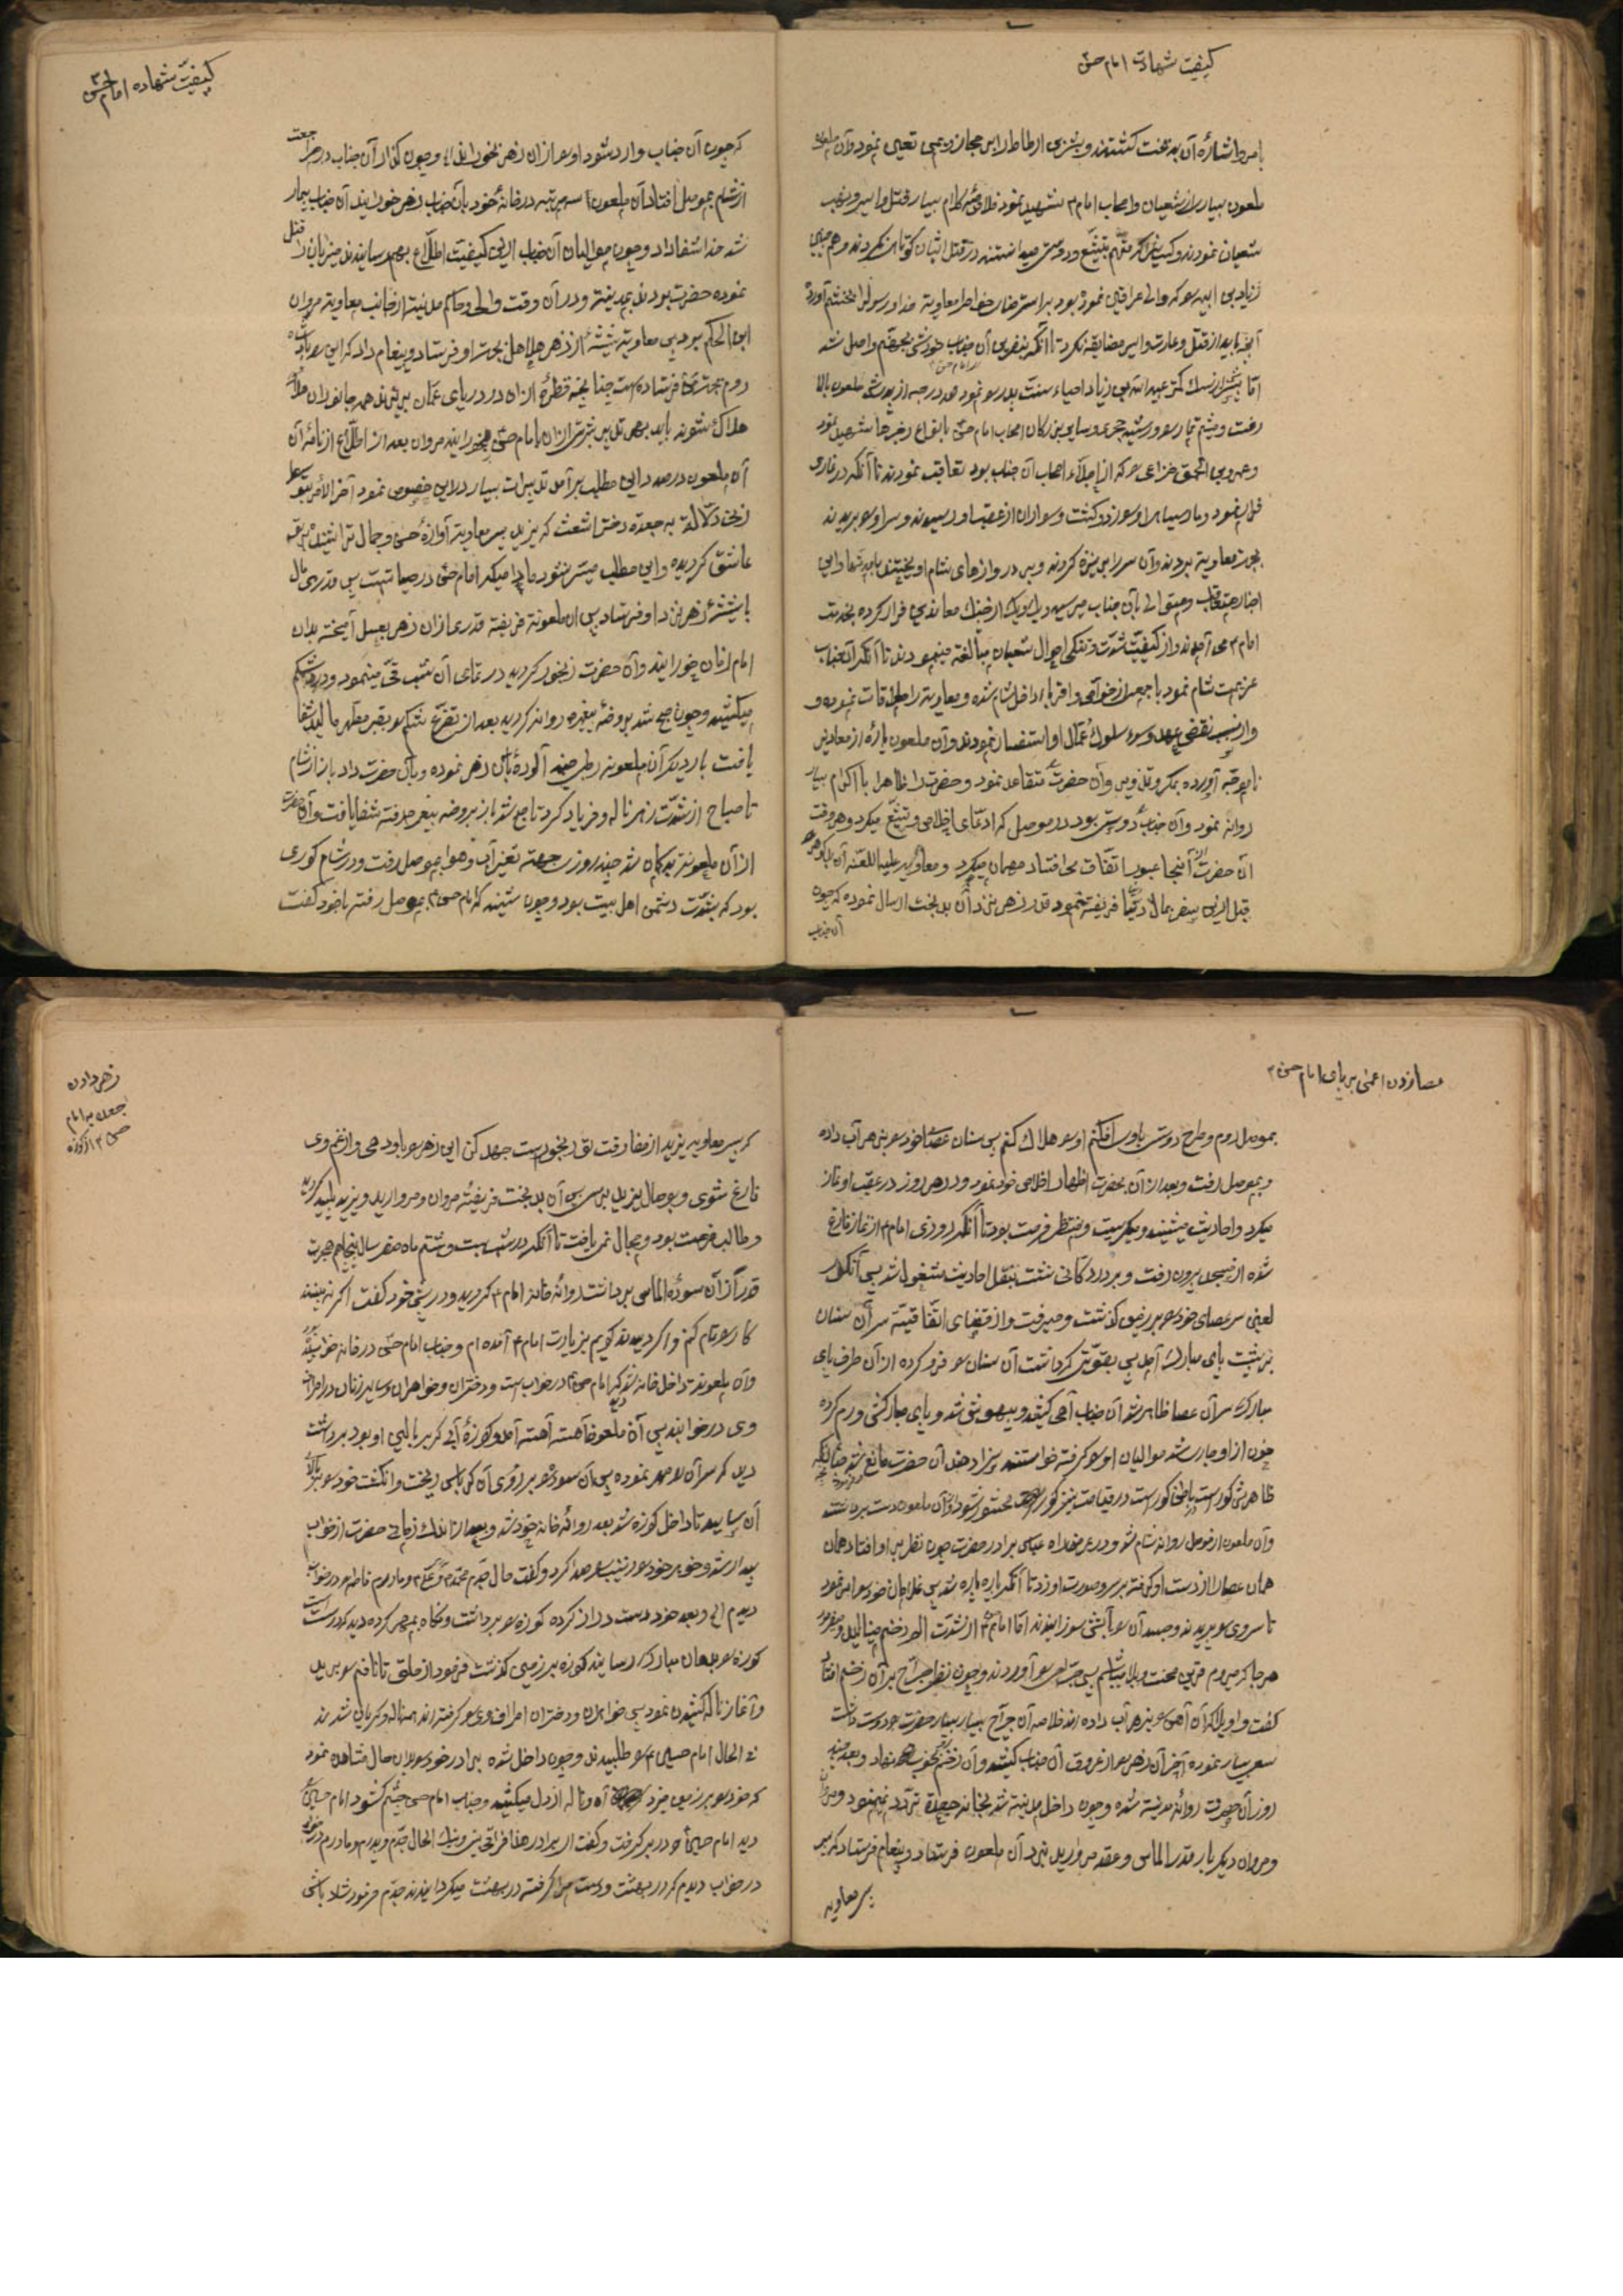 کیفیت شهادت امام حسن
بامر و اشاره آن بدبخت کشتند و بسر بن ارطاة را بر حجاز و یمن تعیین نمود و آن ملعون
ملعون بسیار از شیعیان و اصحاب امام شهید نمود خلاصه کلام بسیار قتل و اسیر و نهب
شیعیان نمودند و کسی را که متهم بتشیع و دوستی میدانستند در قتل ایشان کوتاهی نکردند و هم چنین
زیاد بن ابیه که والی عراقین نموده بود برای استرضای خاطر معاویه خدا و رسول را بخشم آورد
آنچه باید از قتل و غارت و اسیر مضایقه نکرد تا آنکه بنفرین آن جناب بجهنم واصل شد
اما پسرش عبید الله بن زیاد احیاء سنت پدر نمود صد درجه از پدرش ملعون بالا
رفت و میثم تمار و رشید هجری و سایر بزرگان اصحاب امام حسن بانواع زجرها شهید نمود
و عمرو بن الحمق خزاعی که از اجلاء اصحاب آن جناب بود تعاقب نمودند تا آنکه در غاری
فرار نمود و مار سیاهی او را زد و کشت و سواران از عقب او رسیدند و سر او را بریدند
بجهت معاویه بردند و آن سر را بر نیزه کردند و بر دروازهای شام آویختند
اخبار متعاقب و متوالی بآن جناب میرسید و یک یک از چنگ معاندین فرار کرده بخدمت
امام می آمدند و از کیفیت شدت و تنگی احوال شیعیان مبالغه مینمودند تا آنکه آنجناب
عزیمت شام نمود با جمعی از خواص و اقربا داخل شام شده و معاویه را ملاقات نموده و
و از سبب نقض عهد و سوء سلوک عمال او استفسار نمودند و آن ملعون پاره از معاذیر
ناموجه آورده بمکر و تزویر و آن حضرت متقاعد نمود و حضرت را ظاهرا با اکرام بسیار
روانه نمود و آن جناب دوستی بود در موصل که ادعای اخلاص و تشیع میکرد و هر وقت
آن حضرت از آنجا عبور اتفاق می افتاد مهمان میکرد و معاویه علیه اللعنه آن
قبل از این سفر بمال دنیا فریفته نمود قدر زهر نزد آن بدبخت ارسال نموده که چون
آن جناب
کیفیت شهاده امام حسن
که چون آن جناب وارد شود او را از آن زهر بخوران و چون گذار آن جناب در مراجعت
از شام بموصل افتاد آن ملعون سه مرتبه در خانه خود بآن جناب زهر خورانید آن جناب بیمار
شد خدا شفا داد و چون موالیان آن جناب از این کیفیت اطلاع بهم رسانیدند میزبان را قتل
نموده حضرت بودند بمدینه و در آن وقت والی و حاکم مدینه از جانب معاویه مروان
ابن الحکم بود پس معاویه شیشه از زهر هلاهل بجهت او فرستاد و پیغام داد که این را پادشاه
روم بجهت من فرستاده است چنانچه قطره از آن در دریای عمان بریزند همه جانوران
هلاک شوند باید بهر تدبیر شربتی از آن بامام حسن بخورانید مروان بعد از اطلاع از نامه آن
آن ملعون درصدد این مطلب برآمد تدبیرات بسیار در این خصوص نمود آخر الامر بتوسط
زنی دلاله به جعده دختر اشعث که یزید پسر معاویه آوازه حسن و جمال ترا شنیده بر تو
عاشق گردیده و این مطلب میسر نشود مادامیکه امام حسن در حیاتست پس قدری مال
با شیشه زهر نزد او فرستاد پس آن ملعونه فریفته قدری از آن زهر بعسل آمیخته بدان
امام زمان خورانید و آن حضرت رنجور گردید در تمام آن شب قی مینمود و درد شکم
میکشید و چون صبح شد بروضه پیغمبر روانه گردید بعد از تضرع شکم بقبر مطهر مالید شفا
یافت بار دیگر آن ملعونه رطبی چند آلوده بآن زهر نموده و بآن حضرت داد باز از شام
تا صباح از شدت زهر ناله و فریاد کرد تا صبح شد باز بروضه پیغمبر رفته شفا یافت و آن حضرت
از آن ملعونه بدگمان شد چند روز بجهت تغییر آب و هوا بموصل رفت و در شام کوری
بود که بشدت دشمن اهل بیت بود و چون شنید که امام حسن بموصل رفته با خود گفت
عصا زدن اعمی بر پای امام حسن
بموصل روم و طرح دوستی باو درافکنم او را هلاک کنم پس سنان عصا خود را بزهر آب داده
و بموصل رفت و بعد از آن بحضرت اظهار اخلاص خود نمود و در هر روز در عقب او نماز
میکرد و احادیث میشنید و میگریست و منتظر فرصت بود تا آنکه روزی امام از نماز فارغ
شده از مسجد بیرون رفت و بر در دکانی نشست بنقل احادیث مشغول شد پس آن کور
لعین سر عصای خود را بر زمین گذاشت و میرفت و از قضای اتفاقیه سر آن سنان
بر پشت پای مبارک آمد پس بقوتی که داشت آن سنان را فرو کرده از آن طرف پای
مبارک سر آن عصا ظاهر شد آن جناب آهی کشید و بیهوش شد و پای مبارکش ورم کرده
خون از او جاری شد موالیان او را گرفته خواستند سزا دهند آن حضرت مانع شد چنانکه
ظاهرش کور است باطن کور است در قیامت نیز کور محشور شود و آن ملعون دست برداشتند
و آن ملعون از موصل روانه شام شد و در عرض راه عباس برادر حضرت چون نظر بر او افتاد همان
همان عصا را از دست او گرفته بر سر و صورت او زد تا آنکه پاره پاره شد پس غلامان خود را امر فرمود
تا سر وی را بریدند و جسد آن را بآتش سوزانیدند اما امام از شدت الم زخم مینالید و میفرمود
هر جا که میروم قرین محنت و بلا میباشم پس جراحی را آوردند و چون نظر جراح بر آن زخم افتاد
گفت واویلا که آن آهن را بزهر آب داده اند خلاصه آن جراح بسیار حضرت دوست داشت
سعی بسیار نموده آخر آن زهر را از عروق آن جناب کشید و آن زخم بخوب شدن نهاد و بعد چند
روز آن حضرت روانه مدینه شده و چون داخل مدینه شد بخانه جعده تردد نمینمود و مروان
و مروان دیگر بار قدر الماس و عقد مروارید نزد آن ملعون فرستاد و پیغام فرستاد که پسر
پسر معاویه
زهر دادن
جعده به امام
حسن از کوزه
که پسر معاویه یزید از مفارقت تو رنجور است جهد کن این زهر را باو دهی و از غم وی
فارغ شوی و بوصال یزید برسی پس آن بدبخت فریفته مروان و مروارید و یزید پلید گردید
و طالب فرصت بود و مجال نمی یافت تا آنکه در شب بیست و هشتم ماه صفر سال پنجاهم هجرت
قدر از آن سوده الماس برداشت روانه خانه امام گردید و در پیش خود گفت اگر نه بینند
کار را تمام کنم و اگر دیدند گویم بزیارت امام آمده ام و جناب امام حسن در خانه خوابیده بود
و آن ملعونه داخل خانه شد دید که امام حسن در خواب است و دختران و خواهران و سایر زنان در اطراف
وی در خوابند پس آن ملعونه آهسته آهسته آمد و کوزه آبی که بر بالین او بود برداشت
دید که سر آن مهر نموده پس آن سوده را بر روی آن کرباس ریخت و انگشت خود را بر بالای
آن سایید تا داخل کوزه شد بعد روانه خانه خود شد و بعد از اندک زمانی حضرت از خواب
بیدار شد و خواهر خود زینب را صدا کرد و گفت حال جدم محمد و پدرم علی و مادرم فاطمه را در خواب
دیدم الی و بعد خود دست دراز کرده کوزه را برداشت و نگاه بمهر کرده دید که درست است
کوزه را بدهان مبارک رسانید کوزه بر زمین گذاشت فرمود از حلق تا نافم را برید
و آغاز ناله کشیدن نمود پس خواهران و دختران اطراف وی را گرفته اند همه ناله و گریان شدند
فی الحال امام حسین را طلبیدند و چون داخل شده برادر خود را بدان حال مشاهده نمود
که خود را بر زمین میزد آه و ناله از دل میکشد و جناب امام حسن چشم گشود امام حسین را
دید امام حسین را در بر گرفت و گفت ای برادر هذا فراق بینی و بینک الحال جدم و پدرم و مادرم را
در خواب دیدم که در بهشت و دست مرا گرفته در بهشت میگردانیدند جدم فرمود شاد باش